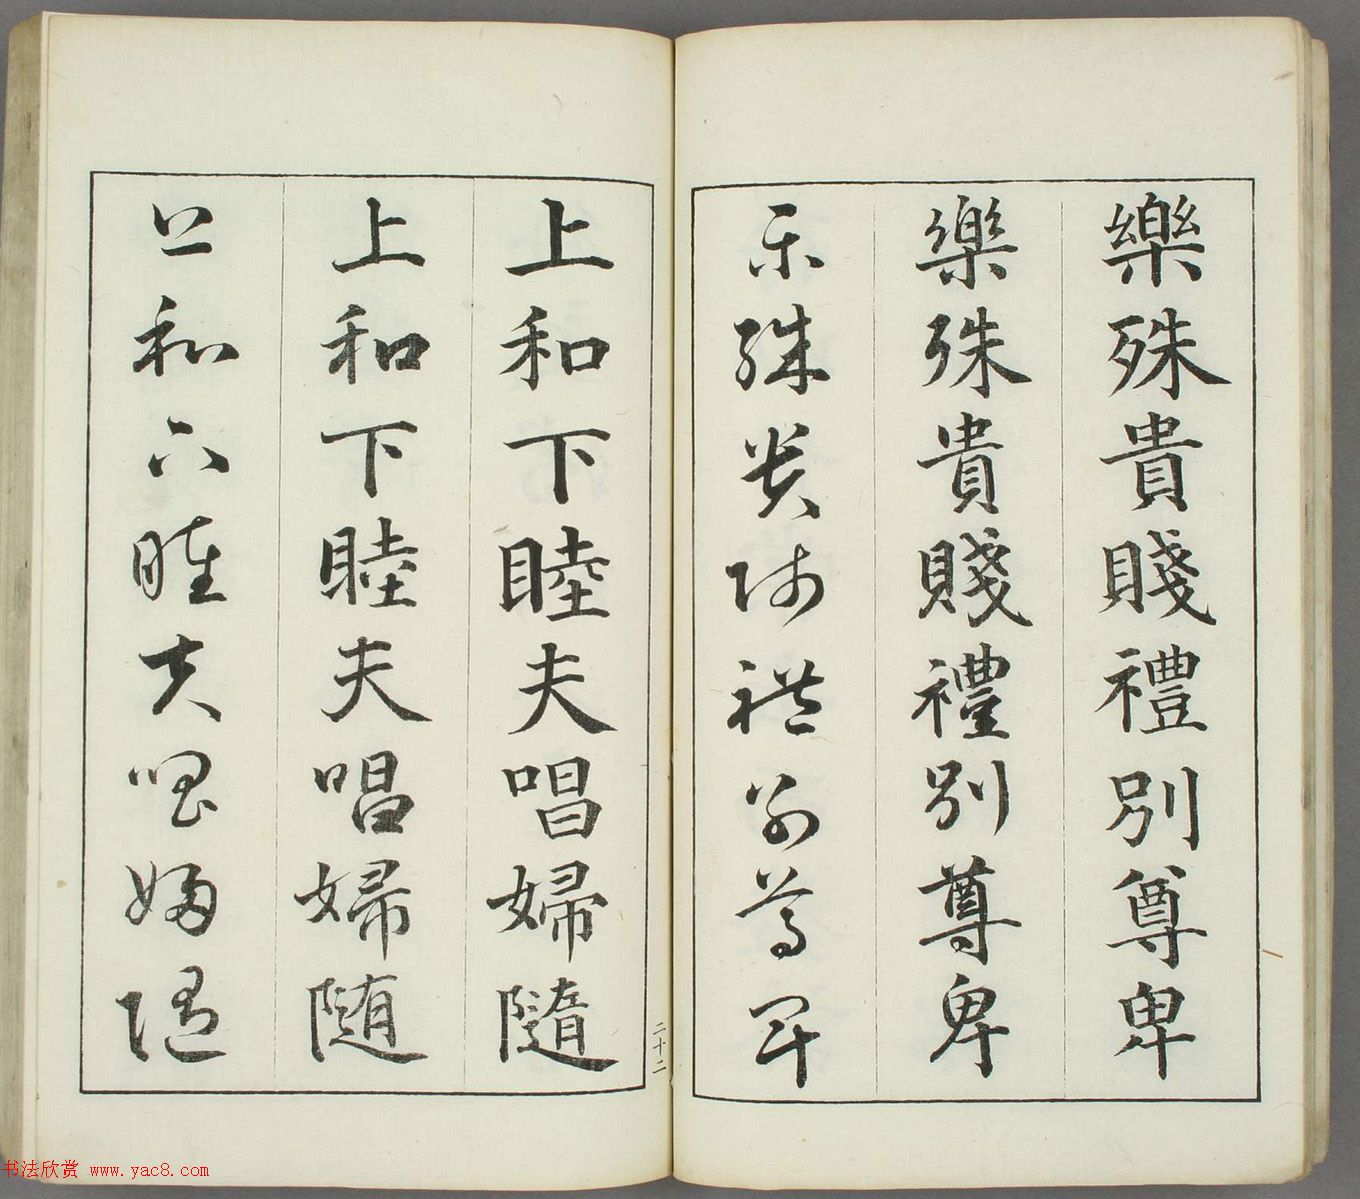 樂殊貴賤禮別尊卑
樂殊貴賤禮別尊卑
樂殊貴賤禮別尊卑
上和下睦夫唱婦隨
上和下睦夫唱婦随
上和下睦夫唱婦随
二十二
书法欣赏 www.yac8.com